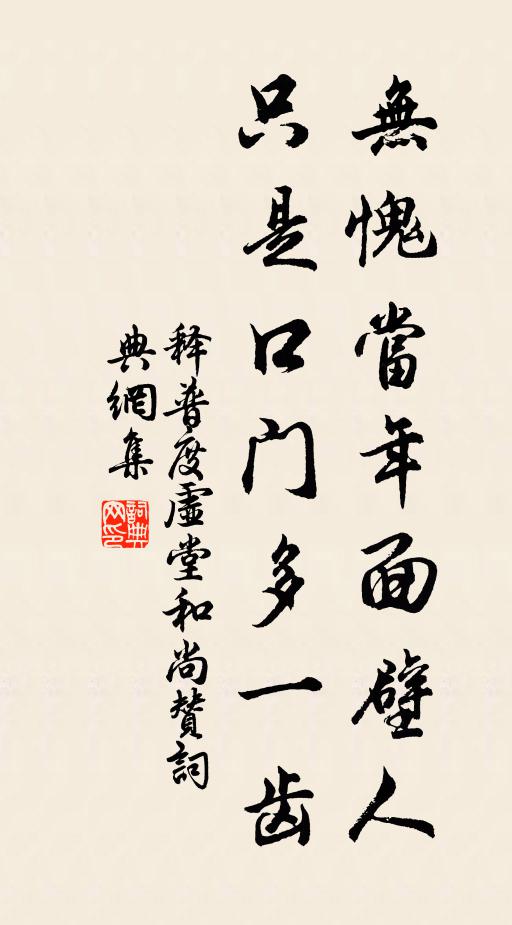 無愧當年面壁人
只是口门多一齿
释普度虚堂和尚贊詞
典網集
詞典网印